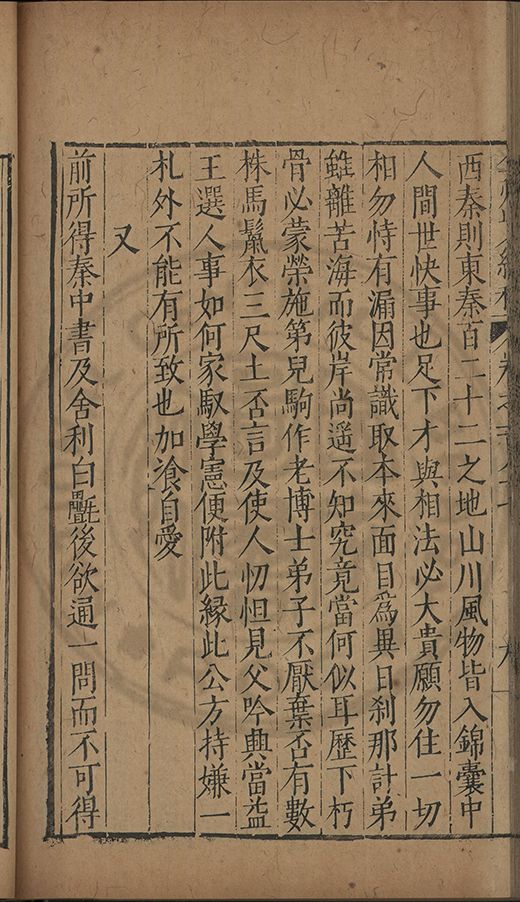 西秦則東秦百二十二之地山川風物皆入錦囊中
人間世快事也足下才與相法必大貴願勿住一切
相勿恃有漏因常識取本來面目為異日剎那計弟
雖離苦海而彼岸尚遥不知究竟當何似耳歷下朽
骨必蒙榮施第兒駒作老博士弟子不厭棄否有數
株馬鬣衣三尺土否言及使人忉怛見父吟興當益
王選人事如何家馭學憲便附此緣此公方持嫌一
札外不能有所致也加飡自愛
又
前所得秦中書及舍利白㲲後欲通一問而不可得